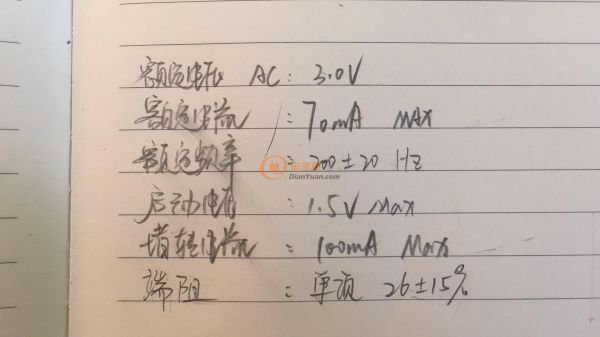 额定电压 AC: 3.0V
额定电流 : 70mA MAX
额定频率 : 200±20 HZ
DianYuan.com
启动电压 : 1.5V Max
堵转电流 : 100mA Max
端阻 : 单项 26±15%